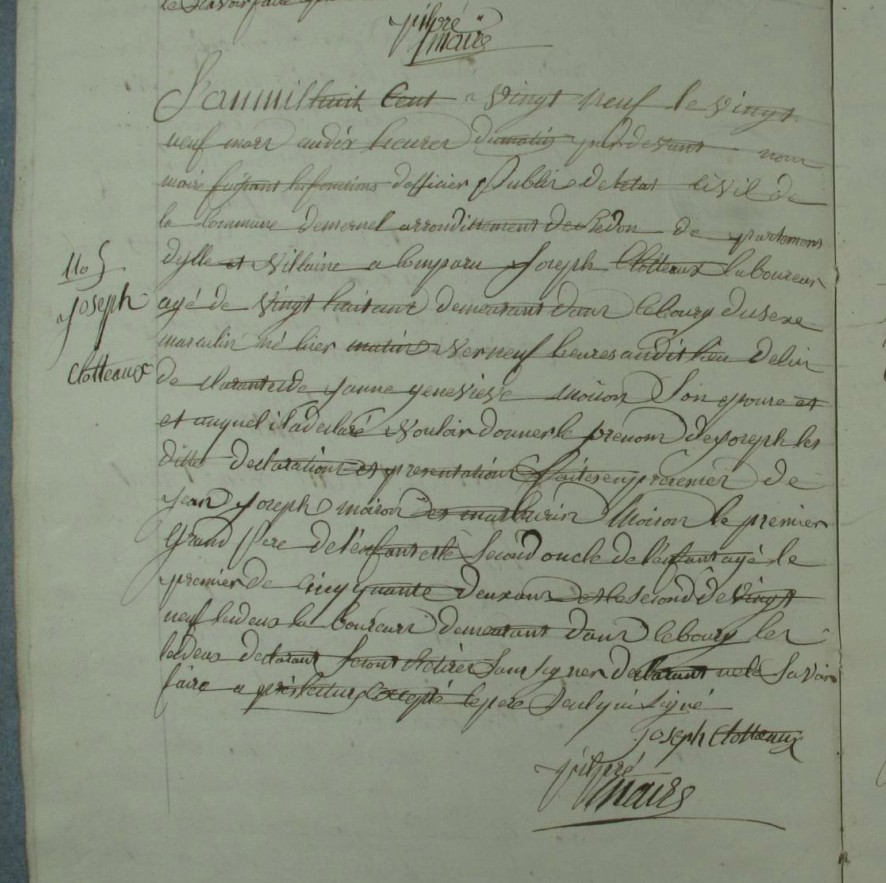 le Savoir faire
maire
L'an mil huit Cent vingt neuf le vingt
neuf mars audix heures dumatin pardevant nous
maire faisant lesfonctions dofficier Public detetat civil de
la Commune demernel arrondissement deRedon departement
dylle et villaine a Comparu Joseph Clotteaux laboureur
agé de vingt huit ans demeurant dans lebourg dusexe
masculin né hier matin verneuf heures audit lieu delui
declarant et de Janne genevieve moison Son epouse et
et auquel iladeclaré vouloir donner le prenom deJoseph les
dittes declarations et presentations faites enpresence de
Jean Joseph moison et mathurin Moison le premier
Grand Pere de l'enfant et le Second oncle de l'enfant agé le
premier de cinquante deux ans et le Second de vingt
neuf lesdeux laboureurs demeurant dans lebourg les
lesdeux declarant Sans Signer declarant ne le Savoir
faire a près lecture excepté lepere Seul qui Signé
110
Joseph
Clotteaux
Joseph Clotteaux
maire